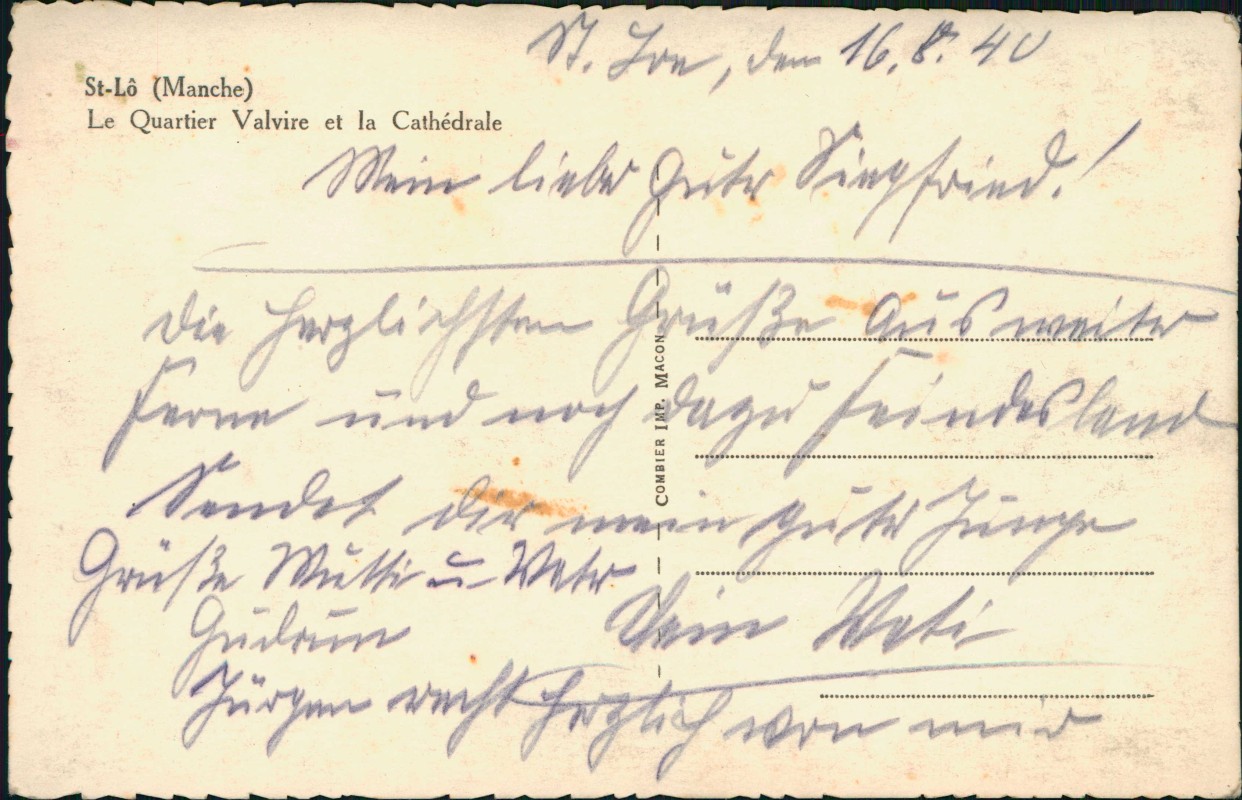 St. Loe, den 16.8.40
St-Lô (Manche)
Le Quartier Valvire et la Cathédrale
Mein lieber guter Siegfried!
die herzlichsten Grüße aus weiter
Ferne und noch dazu Feindesland
Sendet dir mein guter Junge
Dein Vati
Grüße Mutti u.
Gudrun
Jürgen recht herzlich von mir
COMBIER IMP. MACON